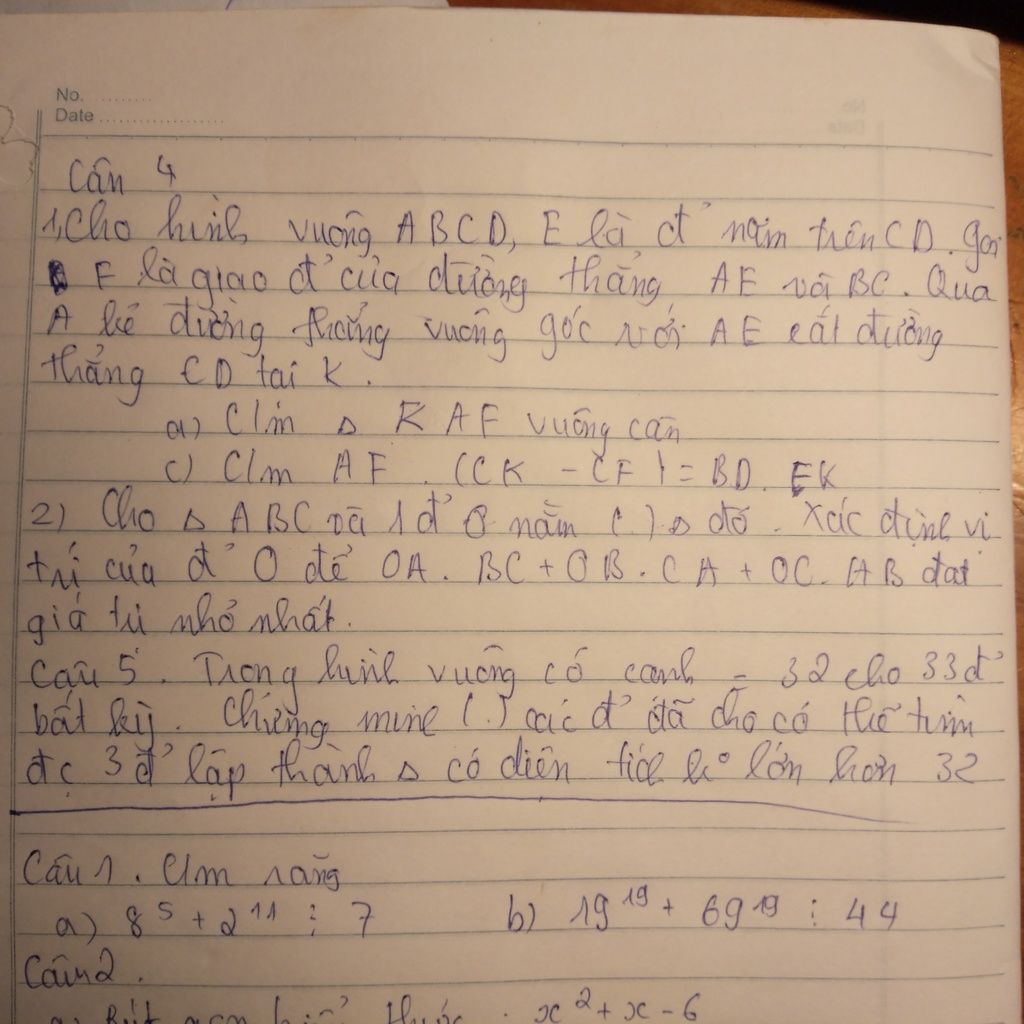 No.
Date
Câu 4
1, Cho hình vuông ABCD, E là đ' nằm trên CD. Gọi
F là giao đ' của đường thẳng AE và BC. Qua
A kẻ đường thẳng vuông góc với AE cắt đường
thẳng CD tại K.
a) C/m Δ KAF vuông cân
c) C/m AF. (CK - CF) = BD. FK
2) Cho Δ ABC và 1 đ' O nằm (.) Δ đó. Xác định vị
trí của đ' O để OA. BC + OB. CA + OC. AB đạt
giá trị nhỏ nhất.
Câu 5. Trong hình vuông có cạnh = 32 cho 33 đ'
bất kỳ. Chứng minh (.) các đ' đã cho có thể tìm
đc 3 đ' lập thành Δ có diện tích k° lớn hơn 32
Câu 1. C/m rằng
a) 8⁵ + 2¹¹ ⋮ 7 b) 19¹⁹ + 69¹⁹ ⋮ 44
Câu 2.
a) Rút gọn thức: x² + x - 6